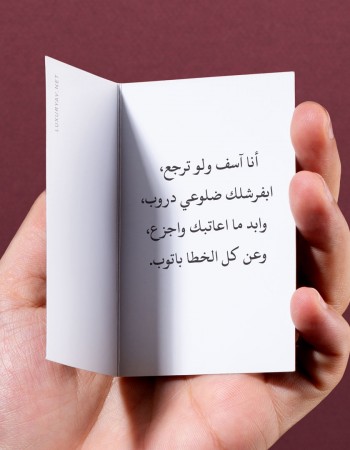 LUXURYAY.NET
أنا آسف ولو ترجع،
ابفرشلك ضلوعي دروب،
وابد ما اعاتبك واجزع،
وعن كل الخطا باتوب.